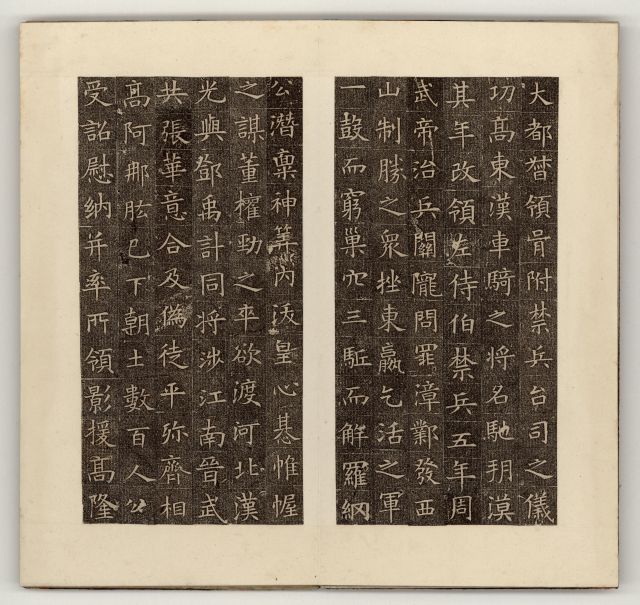 大都督領骨附禁兵台司之儀
功高東漢車騎之將名馳朔漠
其年改領左侍伯禁兵五年周
武帝治兵關隴問罪漳鄴發西
山制勝之衆挫東嬴乞活之軍
一鼓而窮巢穴三駈而解羅網
公潛稟神筭內沃皇心惎帷幄
之謀董權勁之卒欲渡河北漢
光與鄧禹計同將涉江南晉武
共張華意合及偽徒平弥齊相
高阿那肱已下朝士數百人公
受詔慰納并率所領影援高隆